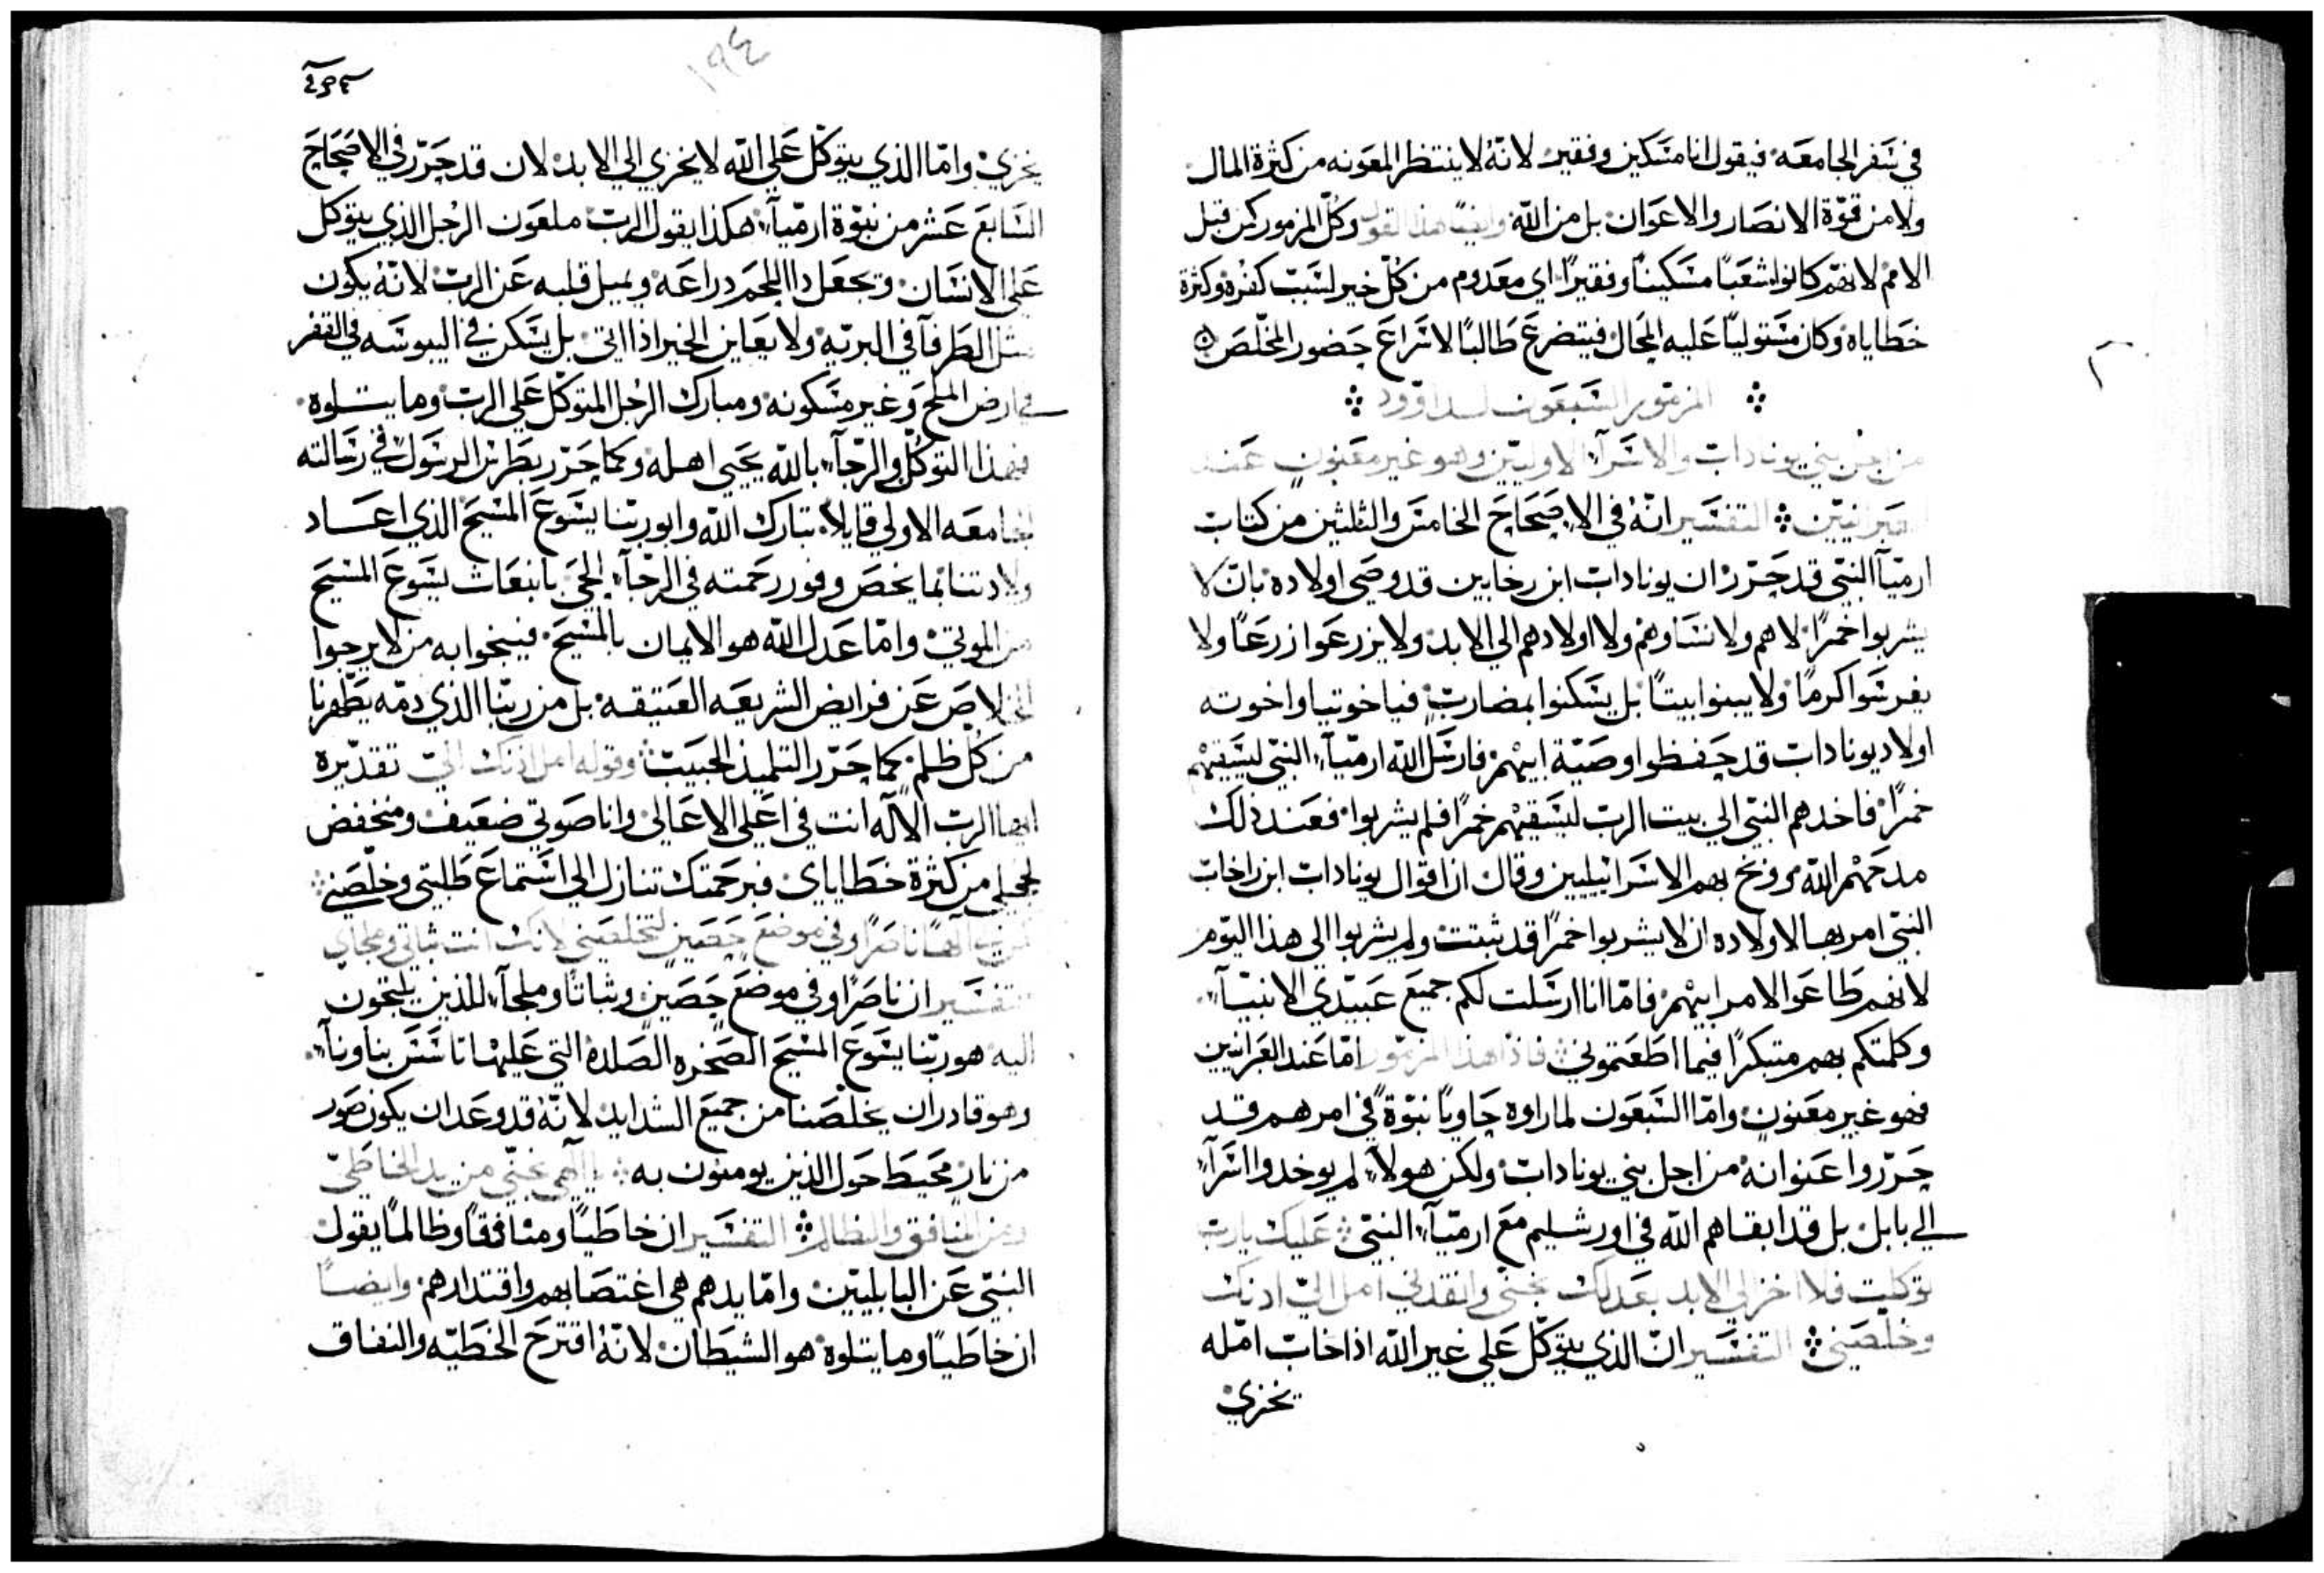 في سفر الجامعه فيقول انا مسكين وفقير لانه لا ينتظر المعونه من كثرة المال
ولا من قوة الانصار والاعوان بل من الله وايضًا هذا القول وكل المزمور كمن قبل
الامم لانهم كانوا شعبًا مسكينًا وفقيرًا اي معدوم من كل خير لسبب كفره وكثرة
خطاياه وكان مستوليًا عليه المحال فيتضرع طالبًا لاسراع حضور المخلص
المزمور السبعون لداوود
من اجل بني يونادات والاسرآء الاوليين وهو غير معنون عند
العبرانيين التفسير انه في الاصحاح الخامس والثلثين من كتاب
ارميآ النبي قد حرر ان يونادات ابن رخابين قد وصى اولاده بان لا
يشربوا خمرًا لاهم ولا نساوهم ولا اولادهم الى الابد ولا يزرعوا زرعًا ولا
يغرسوا كرمًا ولا يبنوا بيتًا بل يسكنوا بمضارب فياخوتيا واخوته
اولاد يونادات قد حفظوا وصية ابيهم فارسل الله ارميآء النبي ليسقيهم
خمرًا فاخدهم النبي الي بيت الرب ليسقيهم خمرًا فلم يشربوا فعند ذلك
مدحهم الله ووبخ بهم الاسرائيليين وقال ان اقوال يونادات ابن راخاب
النبي امر بها لاولاده ان لا يشربوا خمرًا قد ثبتت ولم يشربوا الى هذا اليوم
لانهم طاعوا لامر ابيهم فاما انا ارسلت لكم جميع عبيدي الانبيآء
وكلمتكم بهم متبكرًا فيما اطعتموني فاذًا هذا المزمور اما عند العبرانيين
فهو غير معنون واما السبعون لما راوه حاويًا نبوةً في امرهم قد
حرروا عنوانه من اجل بني يونادات ولكن هولآء لم يوخدوا اسرآء
الي بابل بل قد ابقاهم الله في اورشليم مع ارميآء النبي عليك يارب
توكلت فلا اخزا الي الابد بعدلك نجني وانقدني امل الي ادنك
وخلصني التفسير ان الذي يتوكل علي غير الله اذا خاب امله
يخزي
١٩٤
يخزي واما الذي يتوكل علي الله لا يخزي الي الابد لان قد حرر في الاصحاح
السابع عشر من نبوة ارميآء هكذا يقول الرب ملعون الرجل الذي يتوكل
على الانسان ويجعل دا اللحم دراعه ويميل قلبه عن الرب لانه يكون
مثل الطرفآ في البريه ولا يعاين الخير اذا اتى بل يسكن في اليبوسه في القفر
في ارض الملح وغير مسكونه ومبارك الرجل المتوكل علي الرب وما يتلوه
فهذا التوكل والرجآء بالله يحيي اهله وكما حرر بطرس الرسول في رسالته
الجامعه الاولي قايلاً تبارك الله وابو ربنا يسوع المسيح الذي اعاد
ولادتنا بما يخص وفور رحمته في الرجآء الحي بانبعاث يسوع المسيح
من الموتي واما عدل الله هو الايمان بالمسيح فينجوا به من لا يرجوا
الخلاص عن فرايض الشريعه العتيقه بل من ربنا الذي دمه يطهرنا
من كل ظلم كما حرر التلميذ الحبيب وقوله امل اذنك الي تقديره
ايها الرب الاله انت في اعلي الاعالي وانا صوتي ضعيف ومنخفض
لخجلي من كثرة خطاياي فبرحمتك تنازل الي استماع طلبتي وخلصني
كن لي الهًا ناصرًا وفي موضع حصين لتخلصني لانك انت ثباتي وملجاي
التفسير ان ناصرًا وفي موضع حصين وثباتًا وملجآء للذين يلتجون
اليه هو ربنا يسوع المسيح الصخره الصلده التي عليها تاسس بناونآء
وهو قادر ان يخلصنا من جميع الشدايد لانه قد وعد ان يكون صور
من نار محيط حول الذين يومنون به يا الهي نجني من يد الخاطي
ومن المنافق والظالم التفسير ان خاطيًا ومنافقًا وظالمًا يقول
النبي عن البابليين واما يدهم هي اغتصابهم واقتدارهم وايضًا
ان خاطيًا وما يتلوه هو الشيطان لانه اقترح الخطيه والنفاق